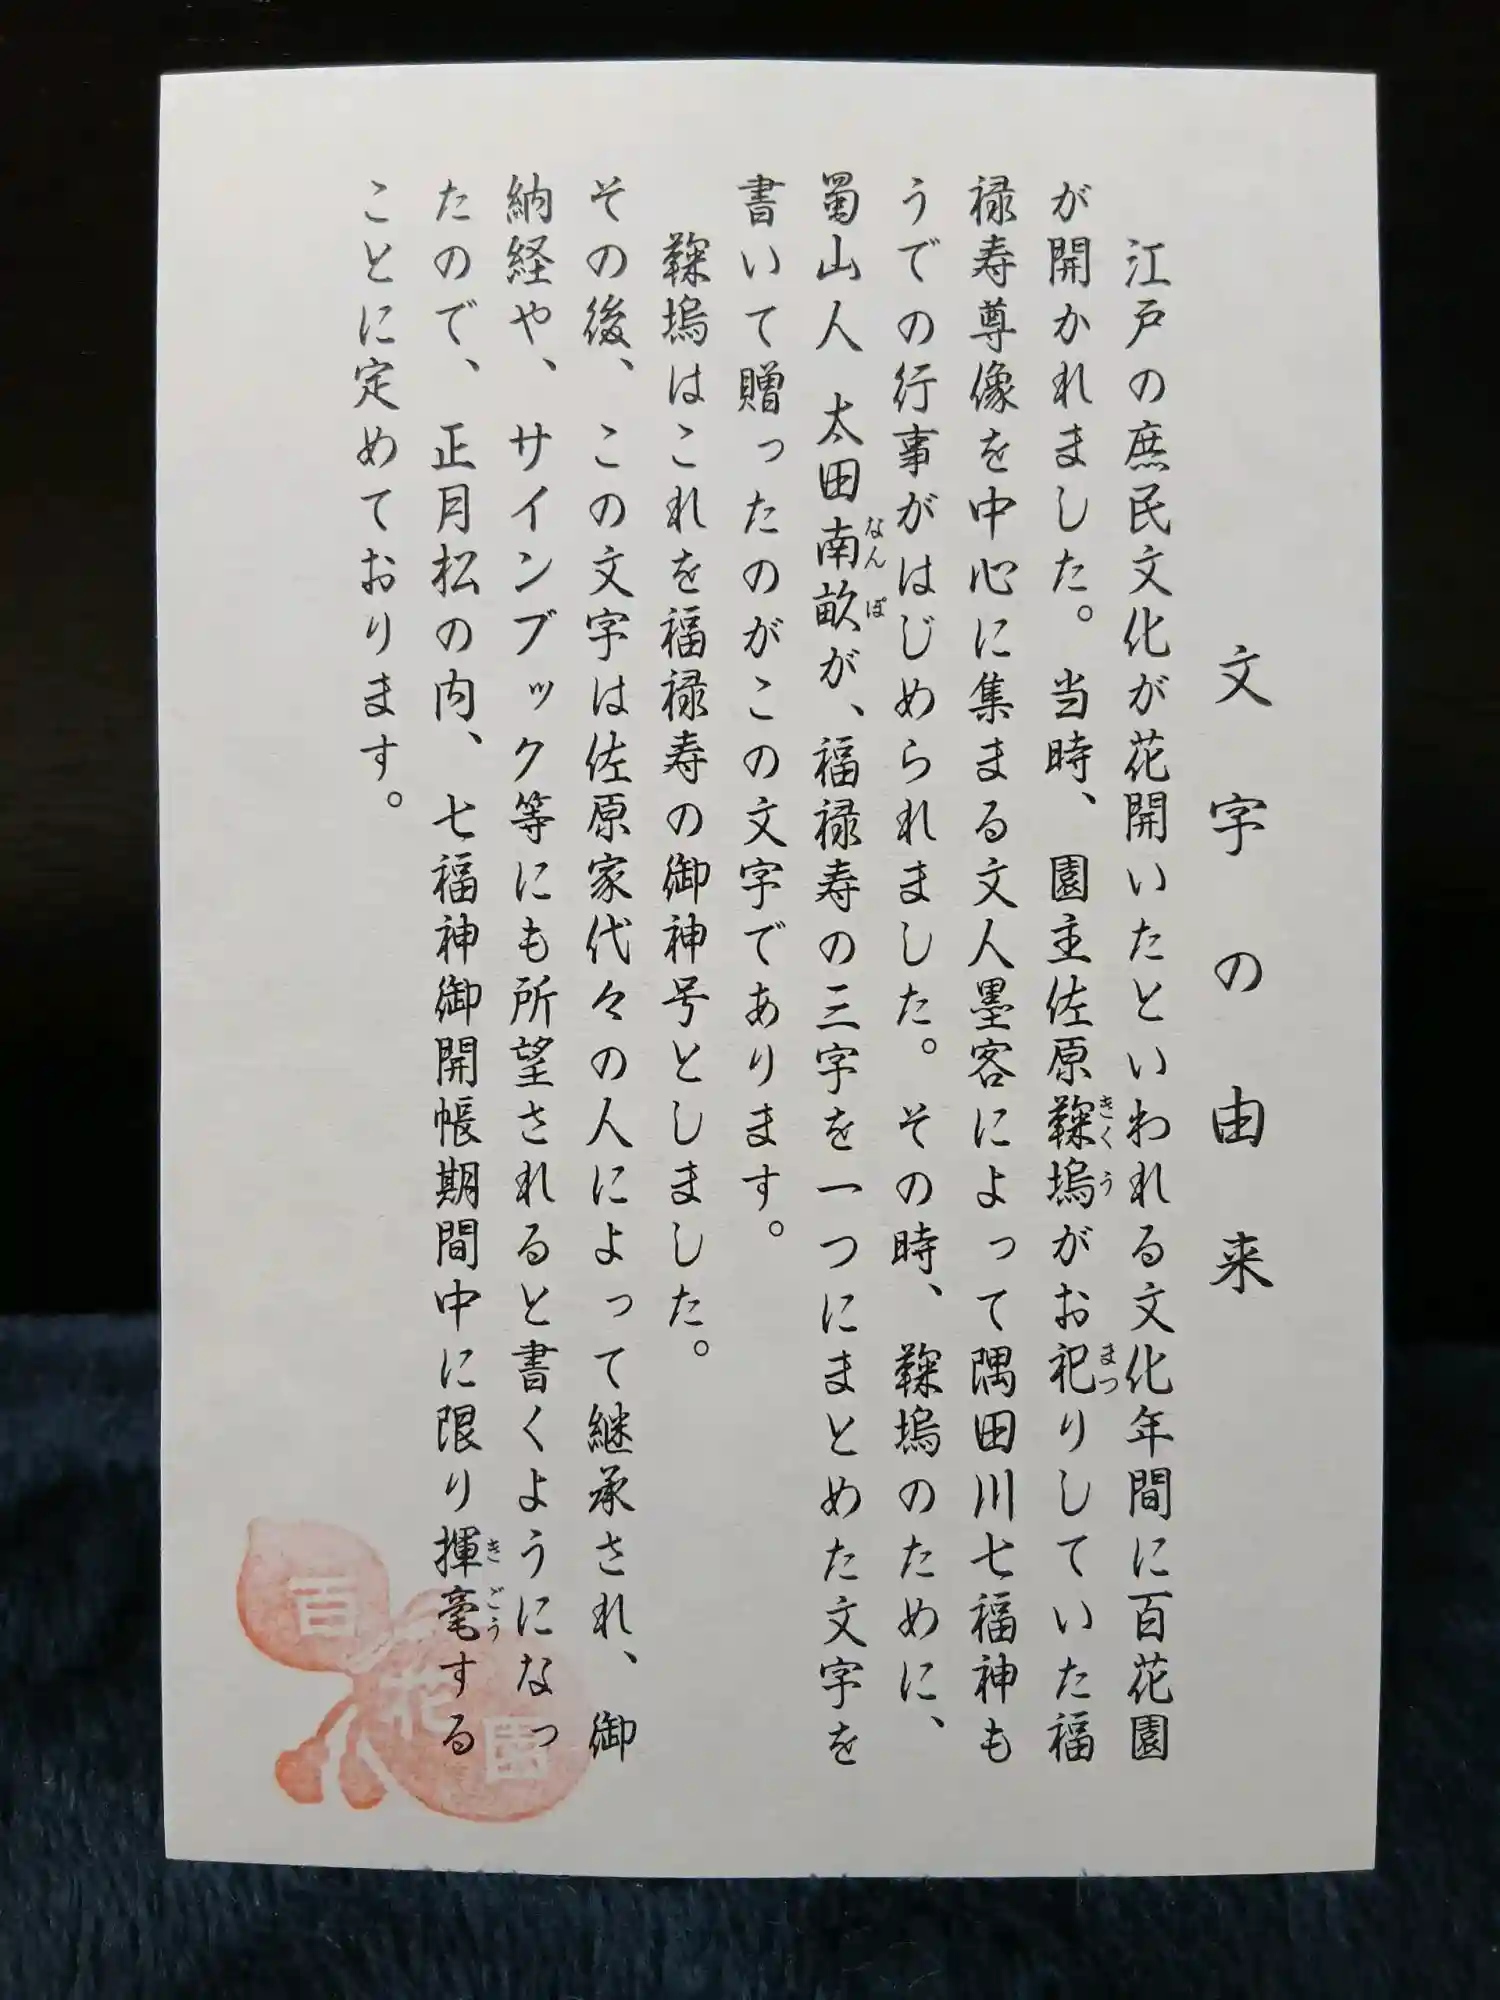 文字の由来
江戸の庶民文化が花開いたといわれる文化年間に百花園
が開かれました。当時、園主佐原鞠塢がお祀りしていた福
きくう
まつ
禄寿尊像を中心に集まる文人墨客によって隅田川七福神も
うでの行事がはじめられました。その時、鞠塢のために、
蜀山人 太田南畝が、福禄寿の三字を一つにまとめた文字を
なんぽ
書いて贈ったのがこの文字であります。
鞠塢はこれを福禄寿の御神号としました。
その後、この文字は佐原家代々の人によって継承され、御
納経や、サインブック等にも所望されると書くようになっ
たので、正月松の内、七福神御開帳期間中に限り揮毫する
きごう
ことに定めております。
百花園